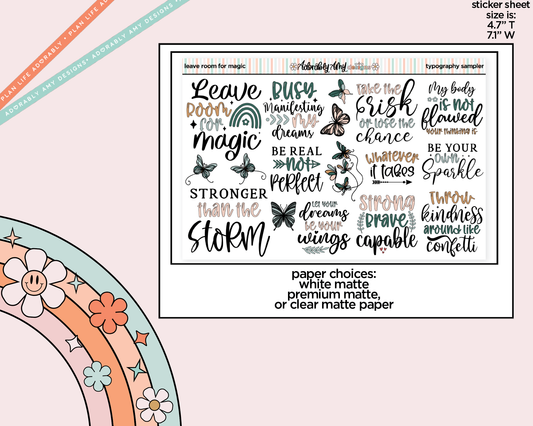 PLAN LIFE ADORABLY • PLAN LIFE ADORABLY •
ADORABLY AMY DESIGNS • ADORABLY AMY DESIGNS •
sticker sheet
size is:
4.7” T
7.1” W
leave room for magic
Adorably Amy
designs
typography sampler
Leave
ROOM
for
magic
BUSY
Manifesting
MY
dreams
take the
risk
or lose the
chance
My body
is not
flawed
your thinking is
STRONGER
than the
STORM
BE REAL
not
PERFECT
whatever
it takes
BE YOUR
OWN
Sparkle
LET YOUR
dreams
be your
wings
STRONG
BRAVE
capable
THROW
kindness
around like
confetti
paper choices:
white matte
premium matte,
or clear matte paper